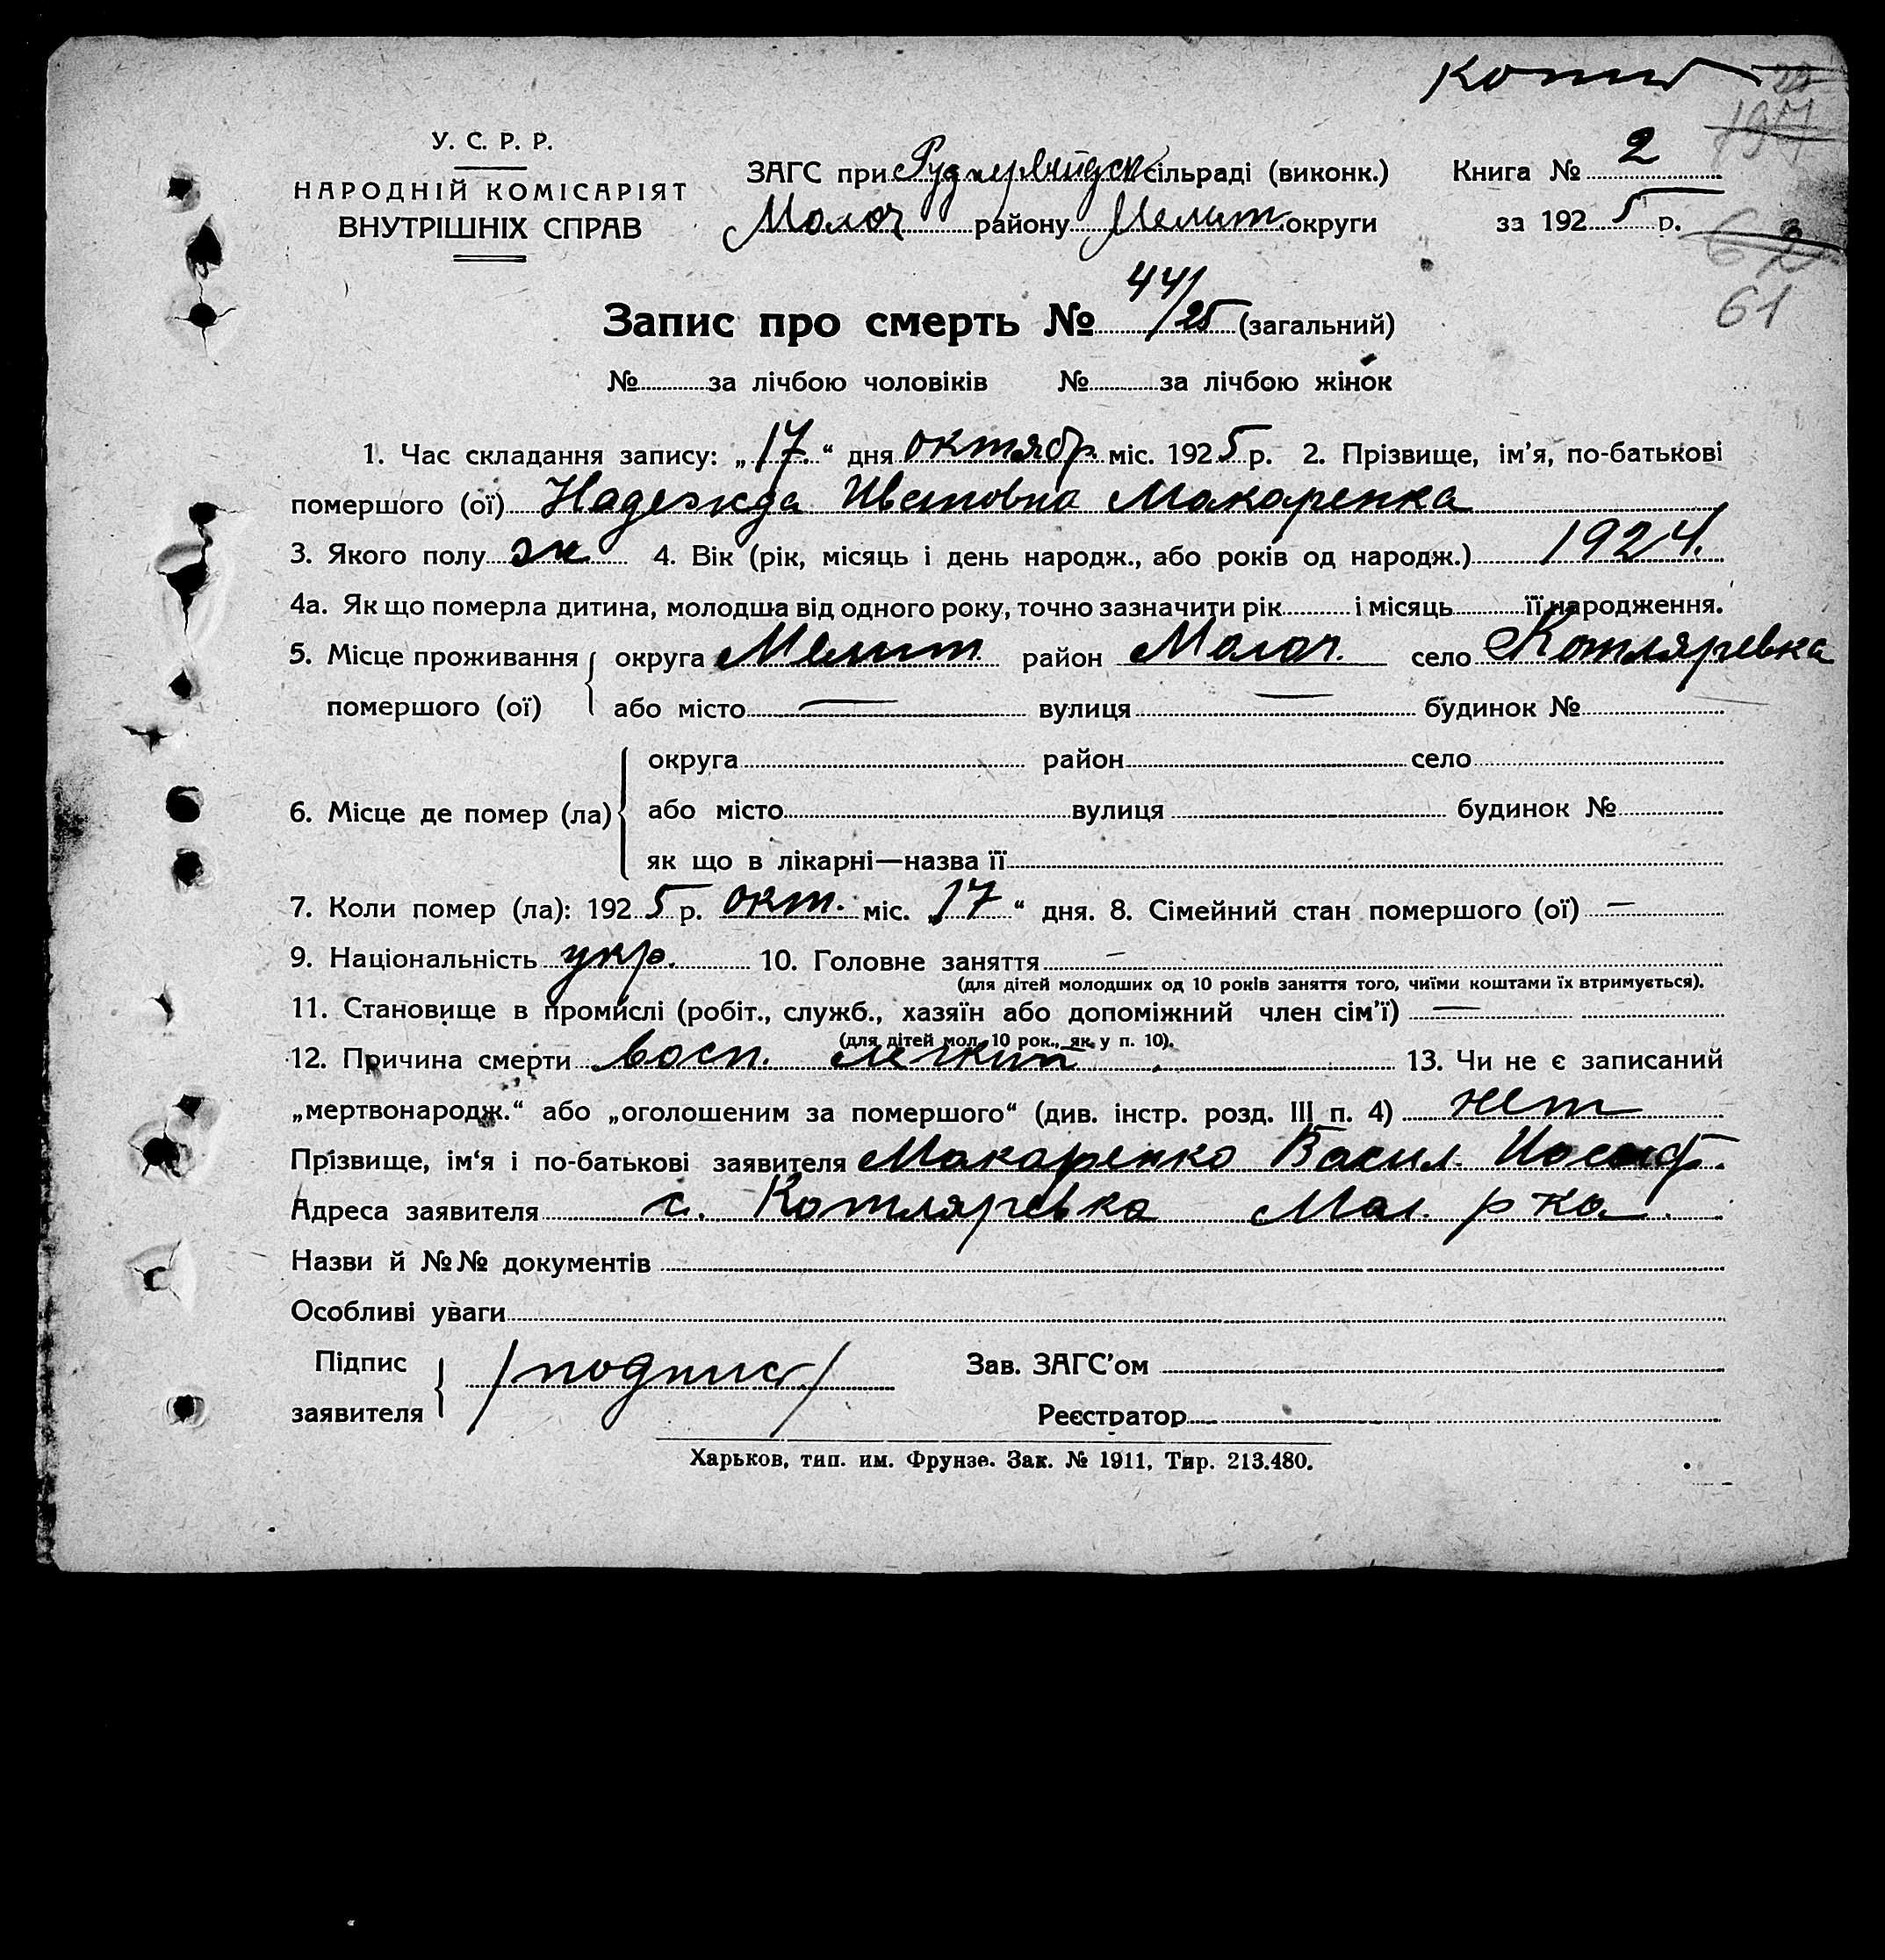 копия 22
197
У. С. Р. Р.
НАРОДНІЙ КОМІСАРІЯТ
ВНУТРІШНІХ СПРАВ
ЗАГС при сільраді (виконк.) Книга № 2
Молоч району Мелит. округи за 1925 р.
62
61
Запис про смерть № 44/25 (загальний)
№ за лічбою чоловіків № за лічбою жінок
1. Час складання запису: „17.“ дня октябр. міс. 1925 р. 2. Прізвище, ім’я, по-батькові
помершого (ої) Надежда Ивановна Макаренка
3. Якого полу ж 4. Вік (рік, місяць і день народж., або років од народж.) 1924.
4а. Як що померла дитина, молодша від одного року, точно зазначити рік і місяць її народження.
5. Місце проживання округа Мелит. район Молоч. село Котляревка
помершого (ої) або місто — вулиця — будинок №
округа район село
6. Місце де помер (ла) або місто вулиця будинок №
як що в лікарні—назва її
7. Коли помер (ла): 1925 р. окт. міс. „17“ дня. 8. Сімейний стан помершого (ої) —
9. Національність укр. 10. Головне заняття —
(для дітей молодших од 10 років заняття того, чиїми коштами їх втримується).
11. Становище в промислі (робіт., служб., хазяїн або допоміжний член сім’ї) —
(для дітей мол. 10 рок., як у п. 10).
12. Причина смерти восп. легких 13. Чи не є записаний
„мертвонародж.“ або „оголошеним за помершого“ (див. інстр. розд. III п. 4) нет
Прізвище, ім‘я і по-батькові заявителя Макаренко Васил. Иосиф.
Адреса заявителя с. Котляревка Мол. р-на.
Назви й №№ документів
Особливі уваги
Підпис /подпись/ Зав. ЗАГС’ом
заявителя Реєстратор
Харьков, тип. им. Фрунзе. Зак. № 1911, Тир. 213.480.